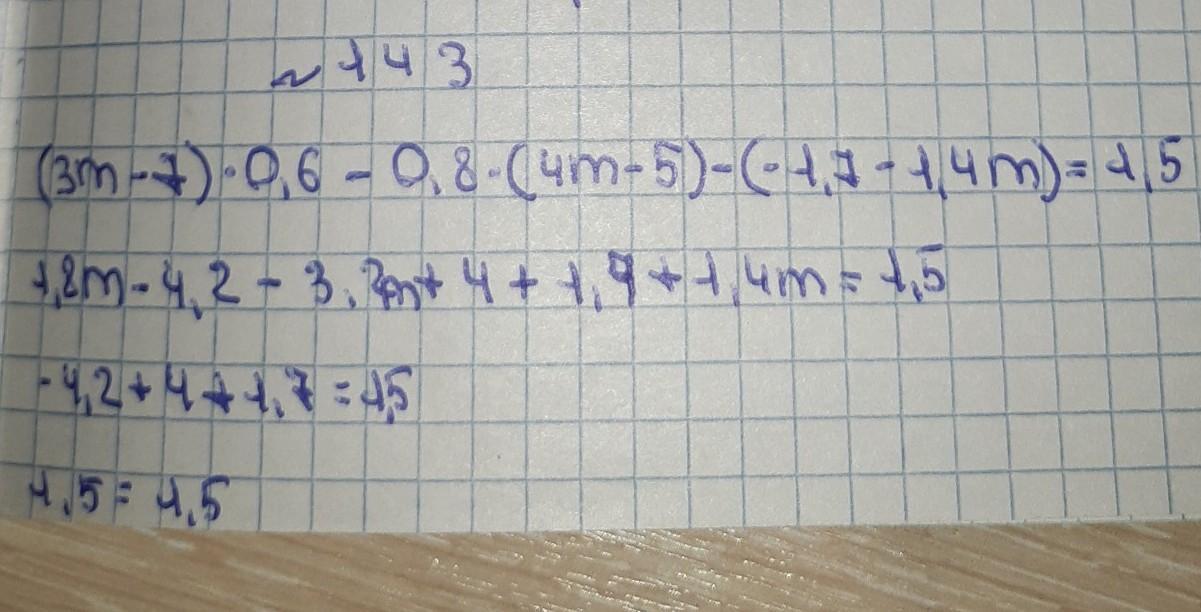 ~143
(3m-7)·0,6-0,8·(4m-5)-(-1,7-1,4m)=1,5
1,8m-4,2-3,2m+4+1,7+1,4m=1,5
-4,2+4+1,7=1,5
1,5=1,5